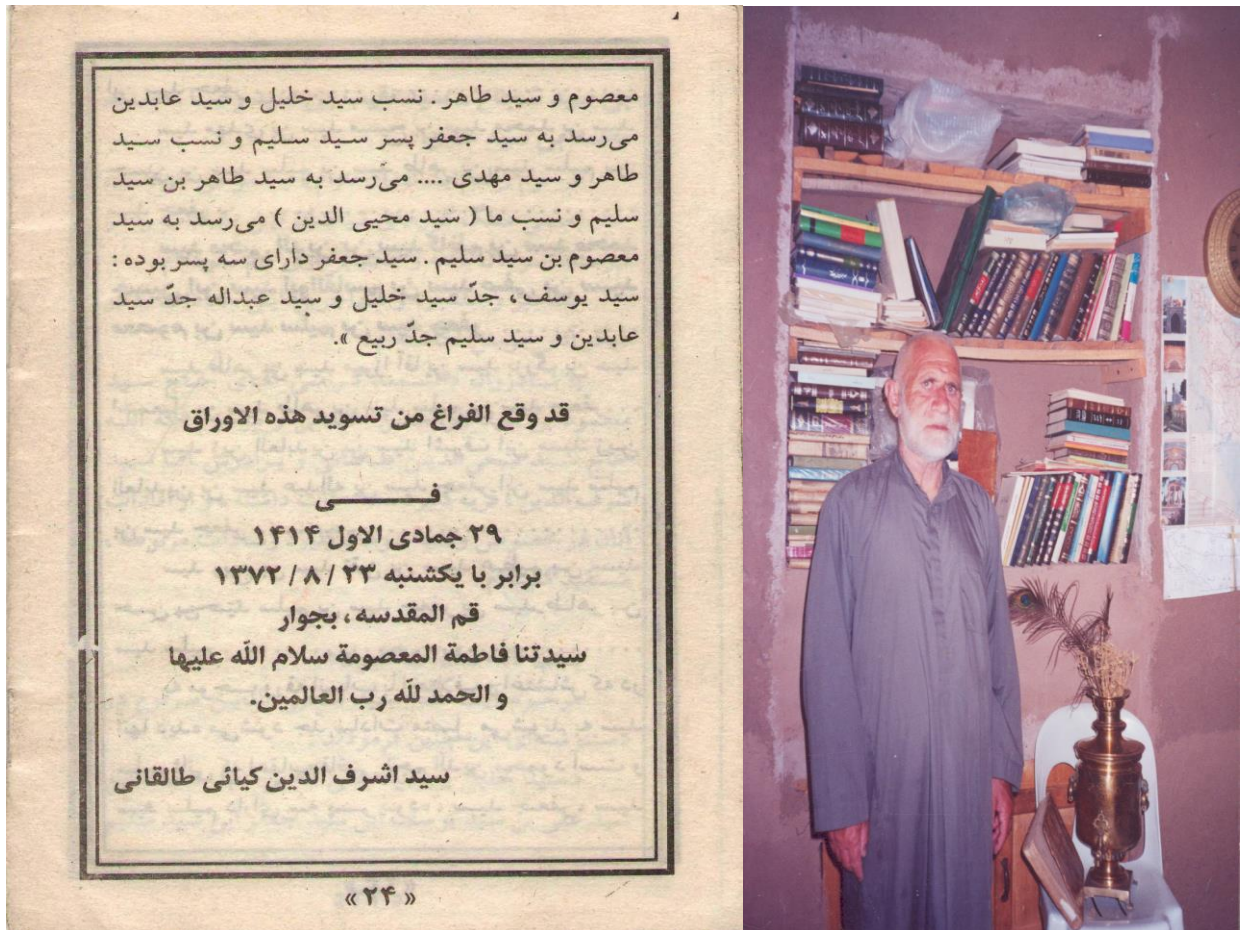 معصوم و سید طاهر . نسب سید خلیل و سید عابدین
می‌رسد به سید جعفر پسر سید سلیم و نسب سید
طاهر و سید مهدی .... می‌رسد به سید طاهر بن سید
سلیم و نسب ما ( سید محیی الدین ) می‌رسد به سید
معصوم بن سید سلیم . سید جعفر دارای سه پسر بوده :
سید یوسف ، جدّ سید خلیل و سید عبداله جدّ سید
عابدین و سید سلیم جدّ ربیع ».
قد وقع الفراغ من تسوید هذه الاوراق
فـــــــــی
۲۹ جمادی الاول ۱۴۱۴
برابر با یکشنبه ۲۳ / ۸ / ۱۳۷۲
قم المقدسه ، بجوار
سیدتنا فاطمة المعصومة سلام اللّه علیها
و الحمد للّه رب العالمین.
سید اشرف الدین کیائی طالقانی
« ۲۴ »